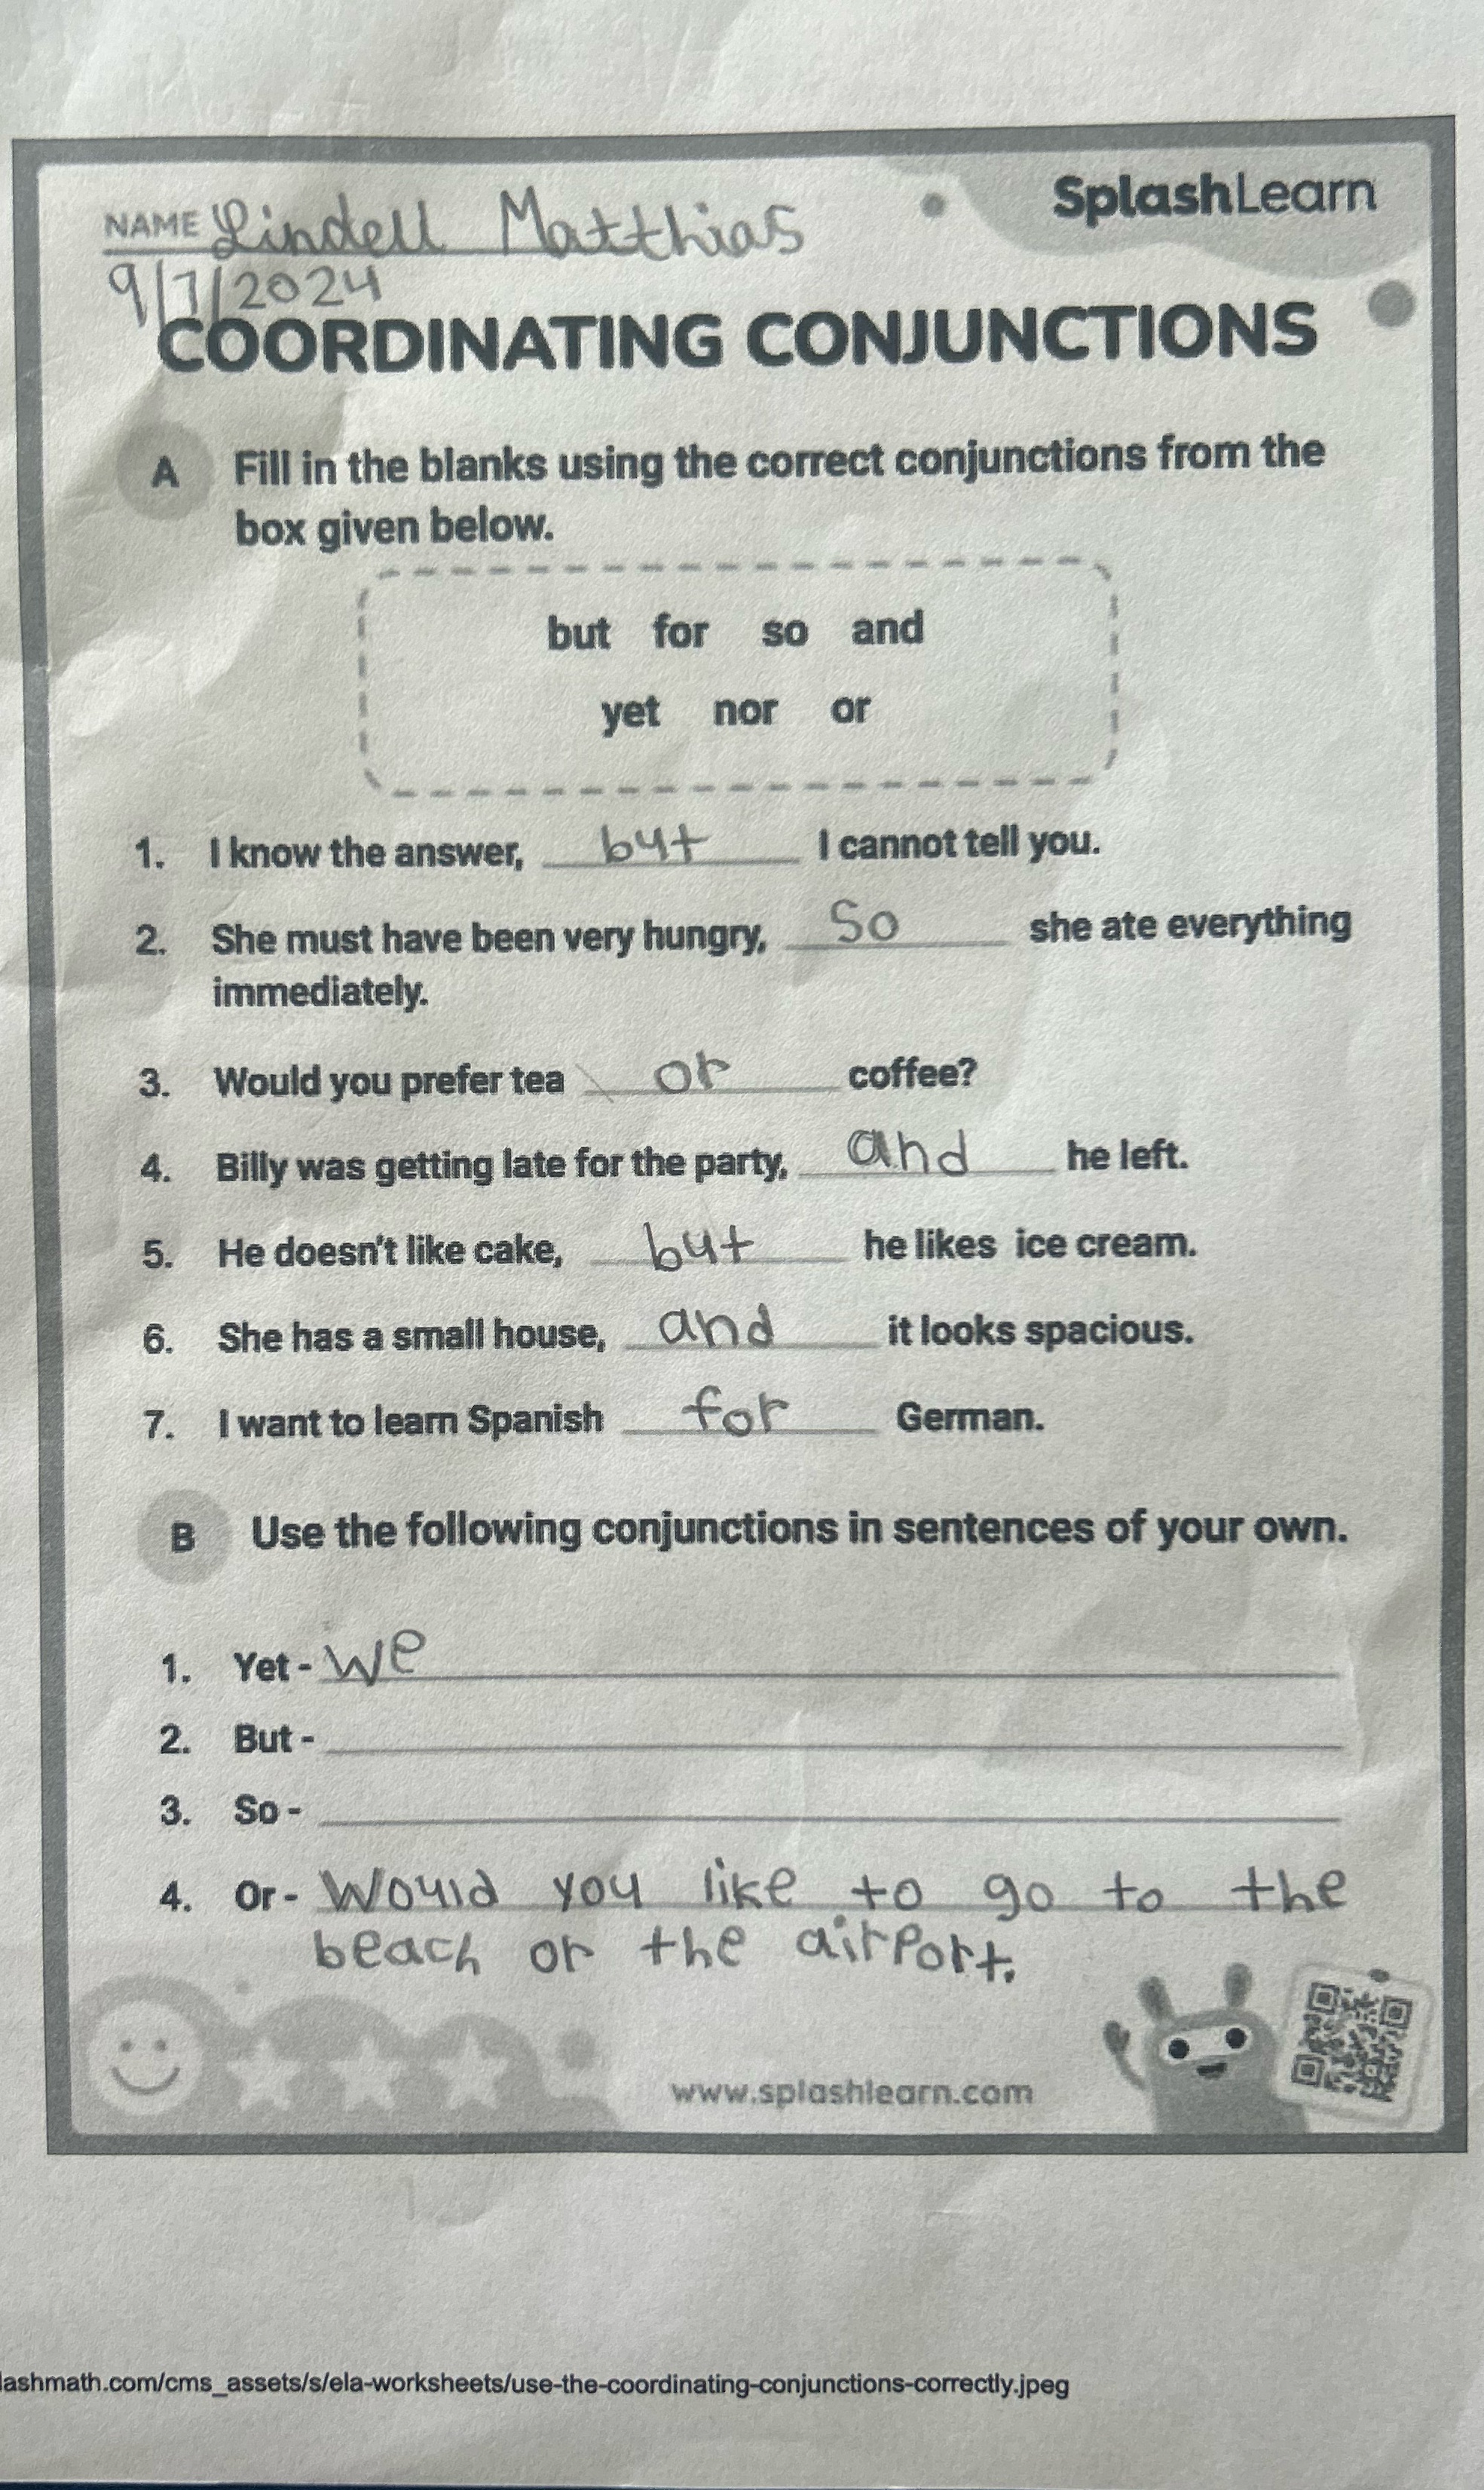 NAME Lindell Matthias
SplashLearn
9/7/2024
COORDINATING CONJUNCTIONS
A Fill in the blanks using the correct conjunctions from the
box given below.
but for so and
yet nor or
1. I know the answer, but I cannot tell you.
2. She must have been very hungry, So she ate everything
immediately.
3. Would you prefer tea or coffee?
4. Billy was getting late for the party, and he left.
5. He doesn't like cake, but he likes ice cream.
6. She has a small house, and it looks spacious.
7. I want to learn Spanish for German.
B Use the following conjunctions in sentences of your own.
1. Yet - We
2. But -
3. So -
4. Or - Would you like to go to the
beach or the airport.
www.splashlearn.com
lashmath.com/cms_assets/s/ela-worksheets/use-the-coordinating-conjunctions-correctly.jpeg